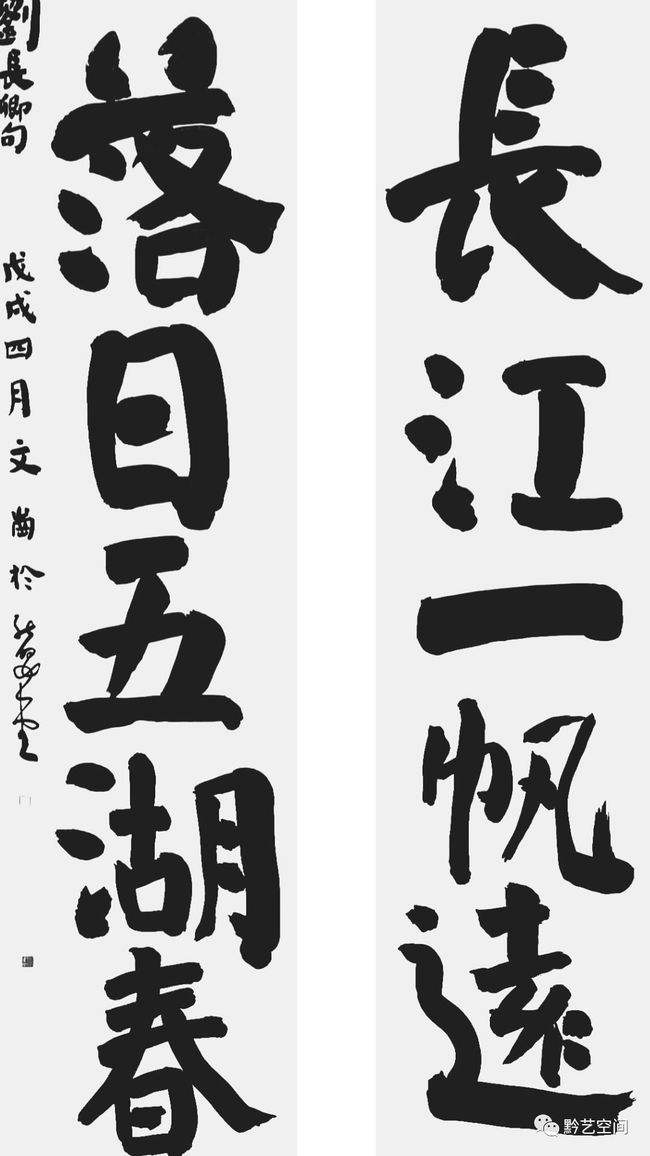 長江一帆遠
落日五湖春
劉長卿句
戊戌四月文於堂
黔艺空间